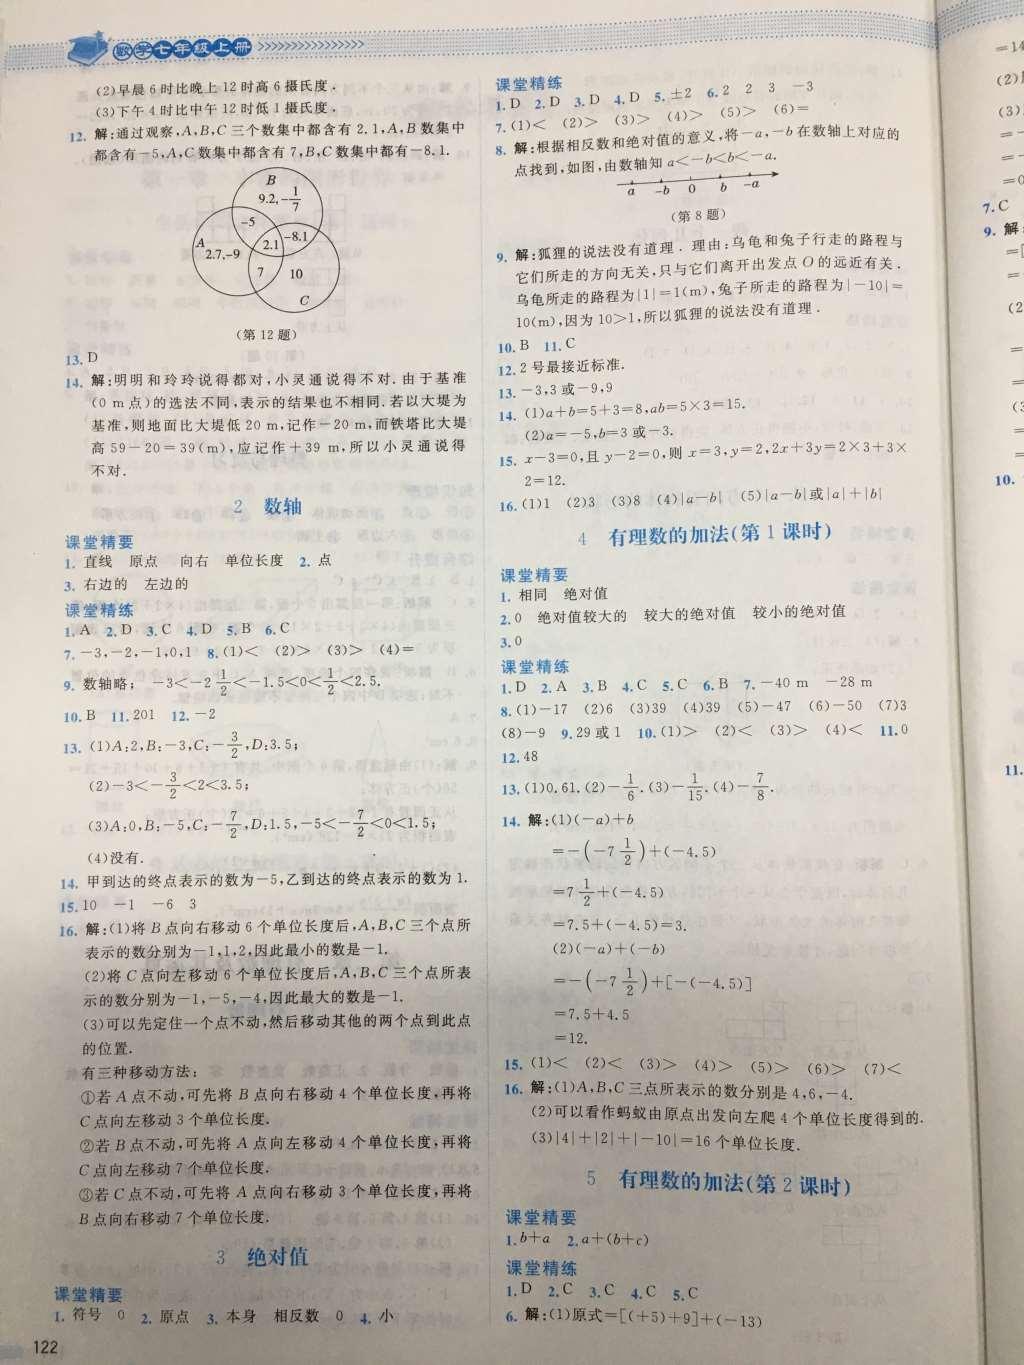 数学七年级上册
(2)早晨6时比晚上12时高6摄氏度.
(3)下午4时比中午12时低1摄氏度.
12. 解:通过观察,A,B,C三个数集中都含有2.1,A,B数集中
都含有-5,A,C数集中都含有7,B,C数集中都有-8.1.
B
9.2,-1/7
-5
A
2.7,-9
2.1
-8.1
7
10
C
(第12题)
13. D
14. 解:明明和玲玲说得都对,小灵通说得不对.由于基准
(0 m点)的选法不同,表示的结果也不相同.若以大堤为
基准,则地面比大堤低20 m,记作-20 m,而铁塔比大堤
高59-20=39(m),应记作+39 m,所以小灵通说得
不对.
2 数轴
课堂精要
1. 直线 原点 向右 单位长度 2. 点
3. 右边的 左边的
课堂精练
1. A 2. D 3. C 4. D 5. B 6. C
7. -3,-2,-1,0,1 8. (1)< (2)> (3)> (4)=
9. 数轴略; -3<-2 1/2<-1.5<0<1/2<2.5.
10. B 11. 201 12. -2
13. (1)A:2,B:-3,C:-3/2,D:3.5;
(2)-3<-3/2<2<3.5;
(3)A:0,B:-5,C:-7/2,D:1.5,-5<-7/2<0<1.5;
(4)没有.
14. 甲到达的终点表示的数为-5,乙到达的终点表示的数为1.
15. 10 -1 -6 3
16. 解:(1)将B点向右移动6个单位长度后,A,B,C三个点所
表示的数分别为-1,1,2,因此最小的数是-1.
(2)将C点向左移动6个单位长度后,A,B,C三个点所表
示的数分别为-1,-5,-4,因此最大的数是-1.
(3)可以先定住一个点不动,然后移动其他的两个点到此点
的位置.
有三种移动方法:
①若A点不动,可先将B点向右移动4个单位长度,再将
C点向左移动3个单位长度.
②若B点不动,可先将A点向左移动4个单位长度,再将
C点向左移动7个单位长度.
③若C点不动,可先将A点向右移动3个单位长度,再将
B点向右移动7个单位长度.
3 绝对值
课堂精要
1. 符号 0 2. 原点 3. 本身 相反数 0 4. 小
122
课堂精练
1. D 2. D 3. D 4. D 5. ±2 6. 2 2 3 -3
7. (1)< (2)> (3)> (4)> (5)> (6)=
8. 解:根据相反数和绝对值的意义,将-a,-b在数轴上对应的
点找到,如图,由数轴知a<-b<b<-a.
a -b 0 b -a
(第8题)
9. 解:狐狸的说法没有道理.理由:乌龟和兔子行走的路程与
它们所走的方向无关,只与它们离开出发点O的远近有关.
乌龟所走的路程为|1|=1(m),兔子所走的路程为|-10|=
10(m),因为10>1,所以狐狸的说法没有道理.
10. B 11. C
12. 2号最接近标准.
13. -3,3或-9,9
14. (1)a+b=5+3=8,ab=5×3=15.
(2)a=-5,b=3或-3.
15. x-3=0,且y-2=0,则x=3,y=2,2x+3y=2×3+3×
2=12.
16. (1)1 (2)3 (3)8 (4)|a-b| (5)|a-b|或|a|+|b|
4 有理数的加法(第1课时)
课堂精要
1. 相同 绝对值
2. 0 绝对值较大的 较大的绝对值 较小的绝对值
3. 0
课堂精练
1. D 2. A 3. B 4. C 5. C 6. B 7. -40 m -28 m
8. (1)-17 (2)6 (3)39 (4)39 (5)-47 (6)-50 (7)3
(8)-9 9. 29或1 10. (1)> (2)< (3)> (4)< 11. 0
12. 48
13. (1)0.61. (2)-1/6. (3)-1/15. (4)-7/8.
14. 解:(1)(-a)+b
=-(-7 1/2)+(-4.5)
=7 1/2+(-4.5)
=7.5+(-4.5)=3.
(2)(-a)+(-b)
=-(-7 1/2)+[-(-4.5)]
=7.5+4.5
=12.
15. (1)< (2)< (3)> (4)> (5)> (6)> (7)<
16. 解:(1)A,B,C三点所表示的数分别是4,6,-4.
(2)可以看作蚂蚁由原点出发向左爬4个单位长度得到的.
(3)|4|+|2|+|-10|=16个单位长度.
5 有理数的加法(第2课时)
课堂精要
1. b+a 2. a+(b+c)
课堂精练
1. D 2. C 3. C 4. C 5. C
6. 解:(1)原式=[(+5)+9]+(-13)
=14
(2)
(3)
=-
=-
=0
7. C
9. 解:
=[
=
(2
=
=
=
10.
11.